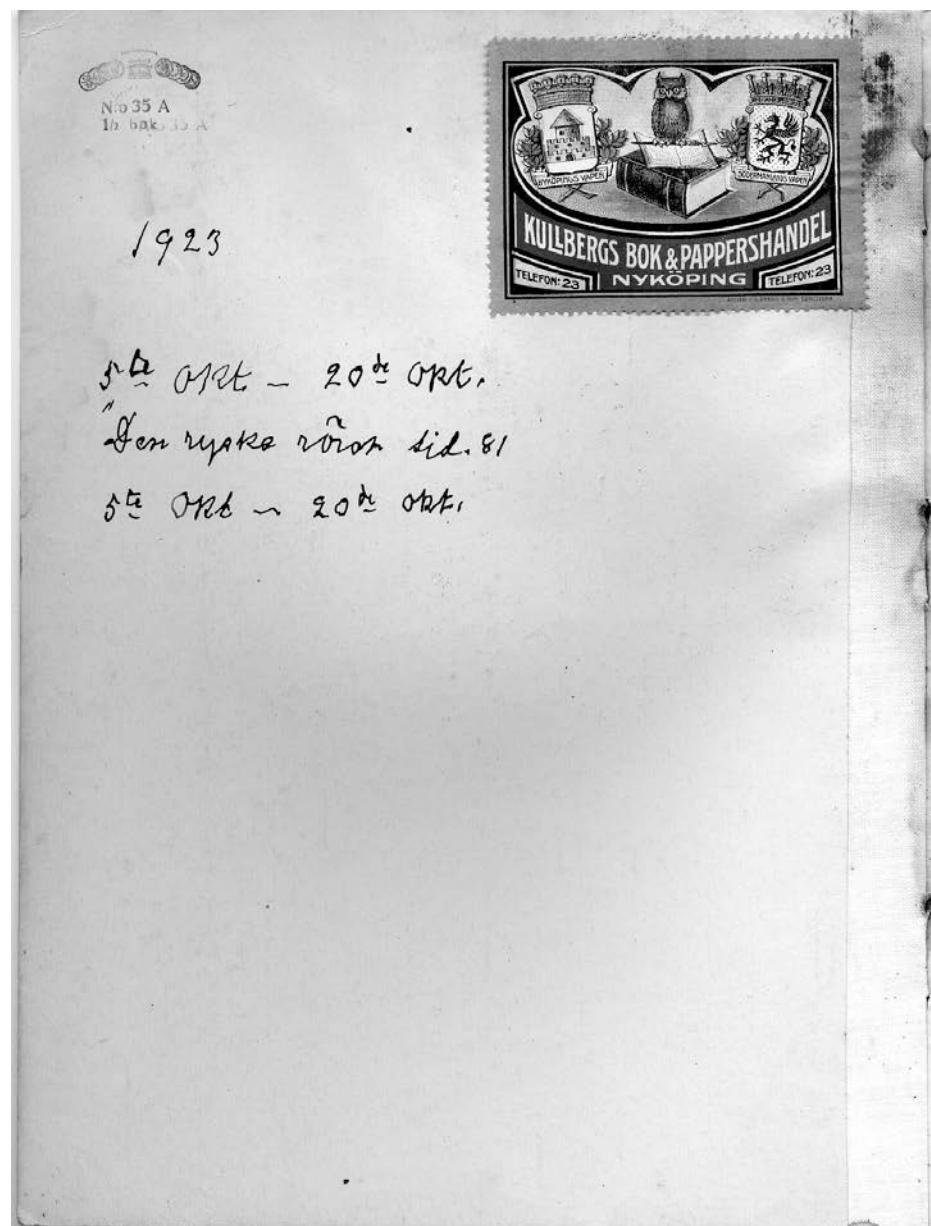 N:o 35 A
NYKÖPINGS VAPEN
SÖDERMANLANDS VAPEN
KULLBERGS BOK & PAPPERSHANDEL
TELEFON: 23 NYKÖPING TELEFON: 23
1923
5te Okt – 20de Okt.
"Den ryska sid. 81
5te Okt – 20de Okt.